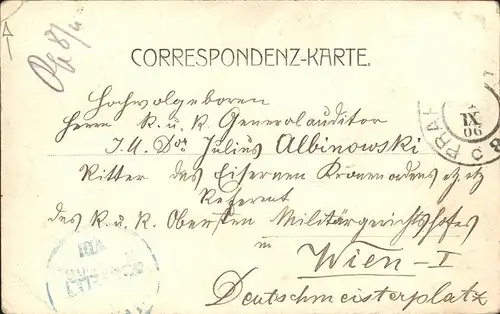 CORRESPONDENZ-KARTE.
Hochwolgeboren
Herrn K. u. K. Generalauditor
J. U. Dor Julius Albinowski
Ritter des Eisernen Kronenordens etz etz
Referent
des K. u. K. Obersten Militärgerichtshofes
in
Wien - I
Deutschmeisterplatz
PRA
IX
06
8